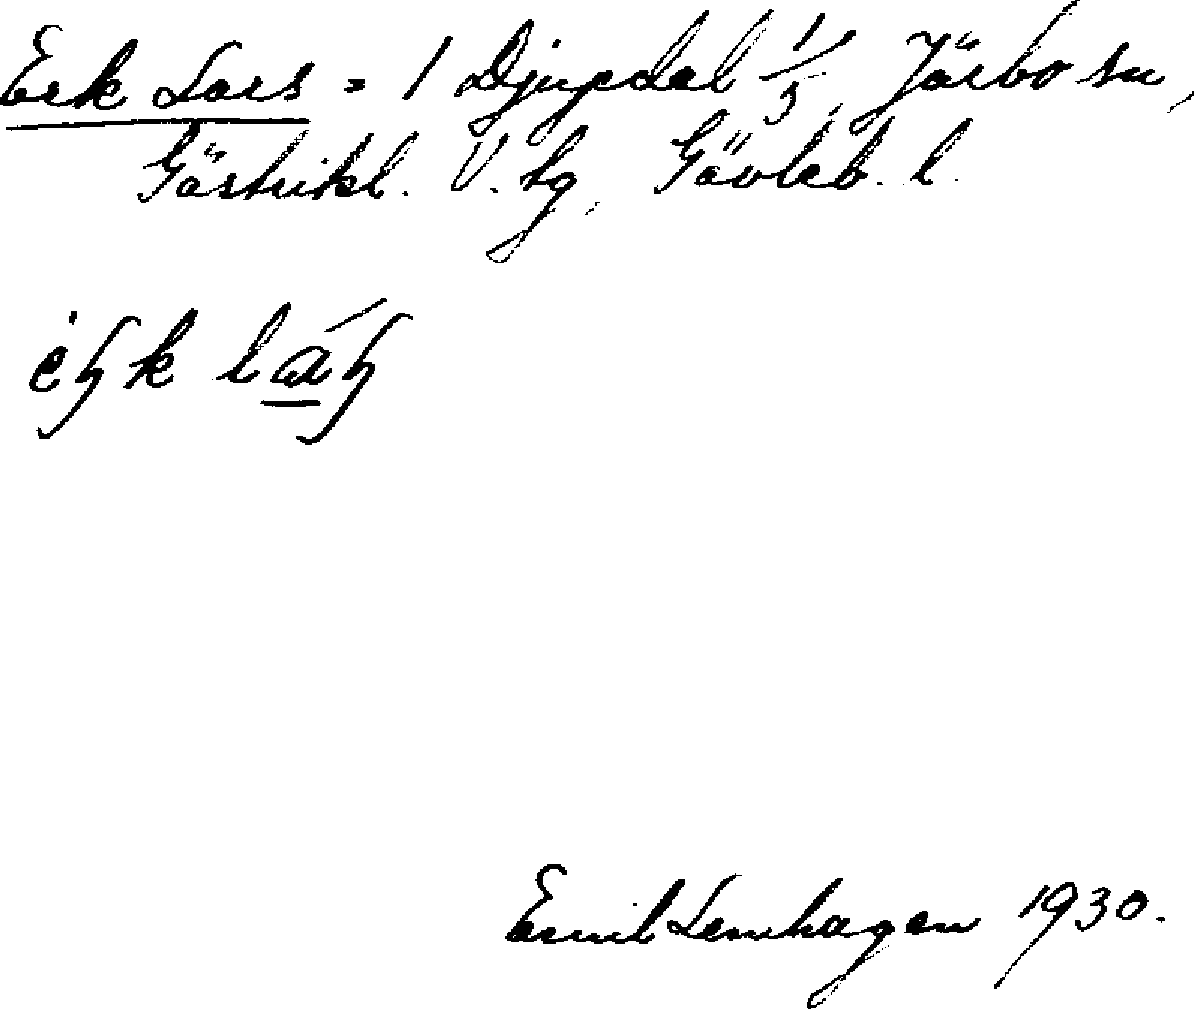 Erk Lars = 1 Djupdal 1/5, Järbo sn,
Gästrikl. V. hg, Gävleb. l.
Emil Lenhagen 1930.